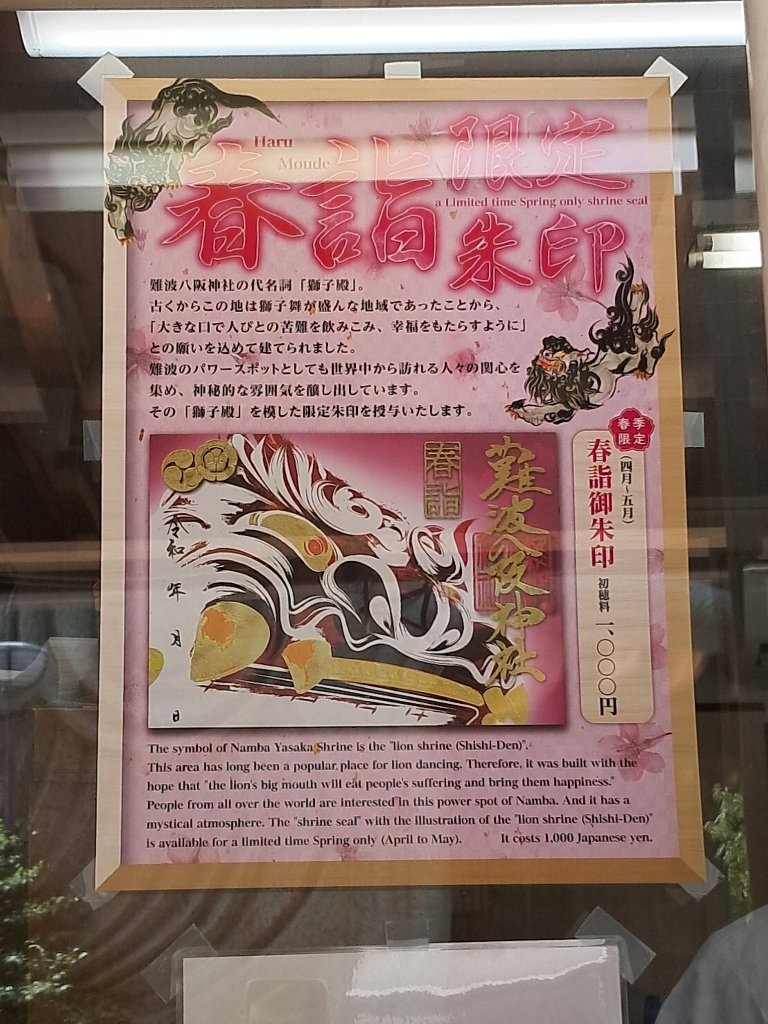 Haru
Moude
春詣 限定
a Limited time Spring only shrine seal
朱印
難波八阪神社の代名詞「獅子殿」。
古くからこの地は獅子舞が盛んな地域であったことから、
「大きな口で人びとの苦難を飲みこみ、幸福をもたらすように」
との願いを込めて建てられました。
難波のパワースポットとしても世界中から訪れる人々の関心を
集め、神秘的な雰囲気を醸し出しています。
その「獅子殿」を模した限定朱印を授与いたします。
春季
限定
春詣御朱印
(四月~五月)
初穂料 一、〇〇〇円
難波八阪神社
春詣
令和 年 月 日
The symbol of Namba Yasaka Shrine is the "lion shrine (Shishi-Den)".
This area has long been a popular place for lion dancing. Therefore, it was built with the
hope that "the lion's big mouth will eat people's suffering and bring them happiness."
People from all over the world are interested in this power spot of Namba. And it has a
mystical atmosphere. The "shrine seal" with the illustration of the "lion shrine (Shishi-Den)"
is available for a limited time Spring only (April to May). It costs 1,000 Japanese yen.